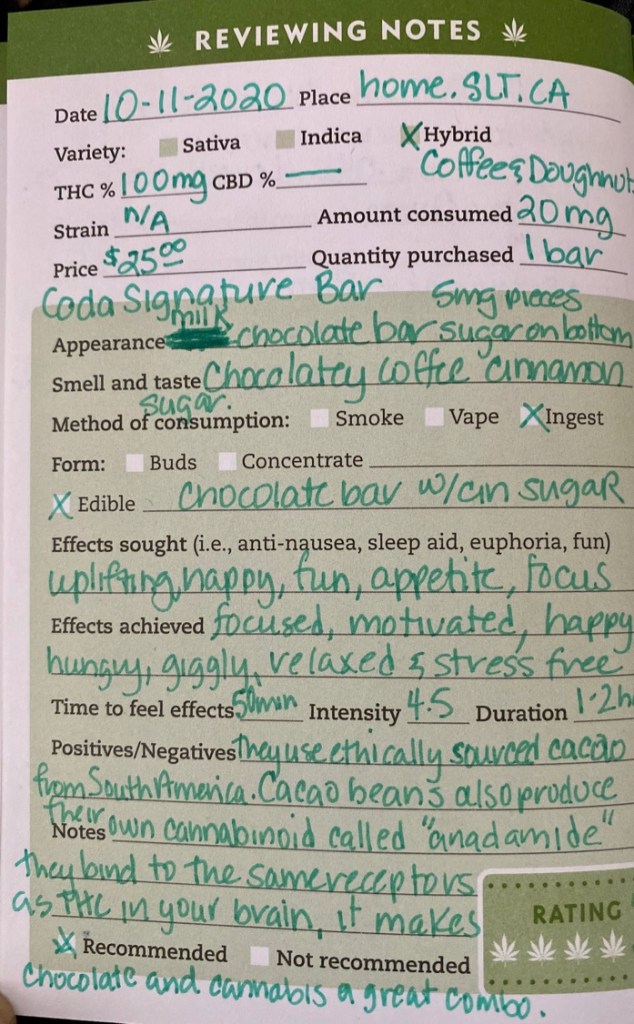 REVIEWING NOTES
Date 10-11-2020 Place home. SLT. CA
Variety: Sativa Indica X Hybrid
THC % 100mg CBD % — Coffee & Doughnut
Strain N/A Amount consumed 20mg
Price $25.00 Quantity purchased 1 bar
Coda Signature Bar 5mg pieces
Appearance milk chocolate bar sugar on bottom
Smell and taste Chocolatey coffee cinnamon
sugar.
Method of consumption: Smoke Vape X Ingest
Form: Buds Concentrate
X Edible chocolate bar w/cin sugar
Effects sought (i.e., anti-nausea, sleep aid, euphoria, fun)
uplifting, happy, fun, appetite, focus
Effects achieved focused, motivated, happy
hungry, giggly, relaxed & stress free
Time to feel effects 50min Intensity 4.5 Duration 1-2h
Positives/Negatives They use ethically sourced cacao
from South America. Cacao beans also produce
Notes their own cannabinoid called "anadamide"
they bind to the same receptors
as THC in your brain, it makes
RATING
X Recommended Not recommended
chocolate and cannabis a great combo.